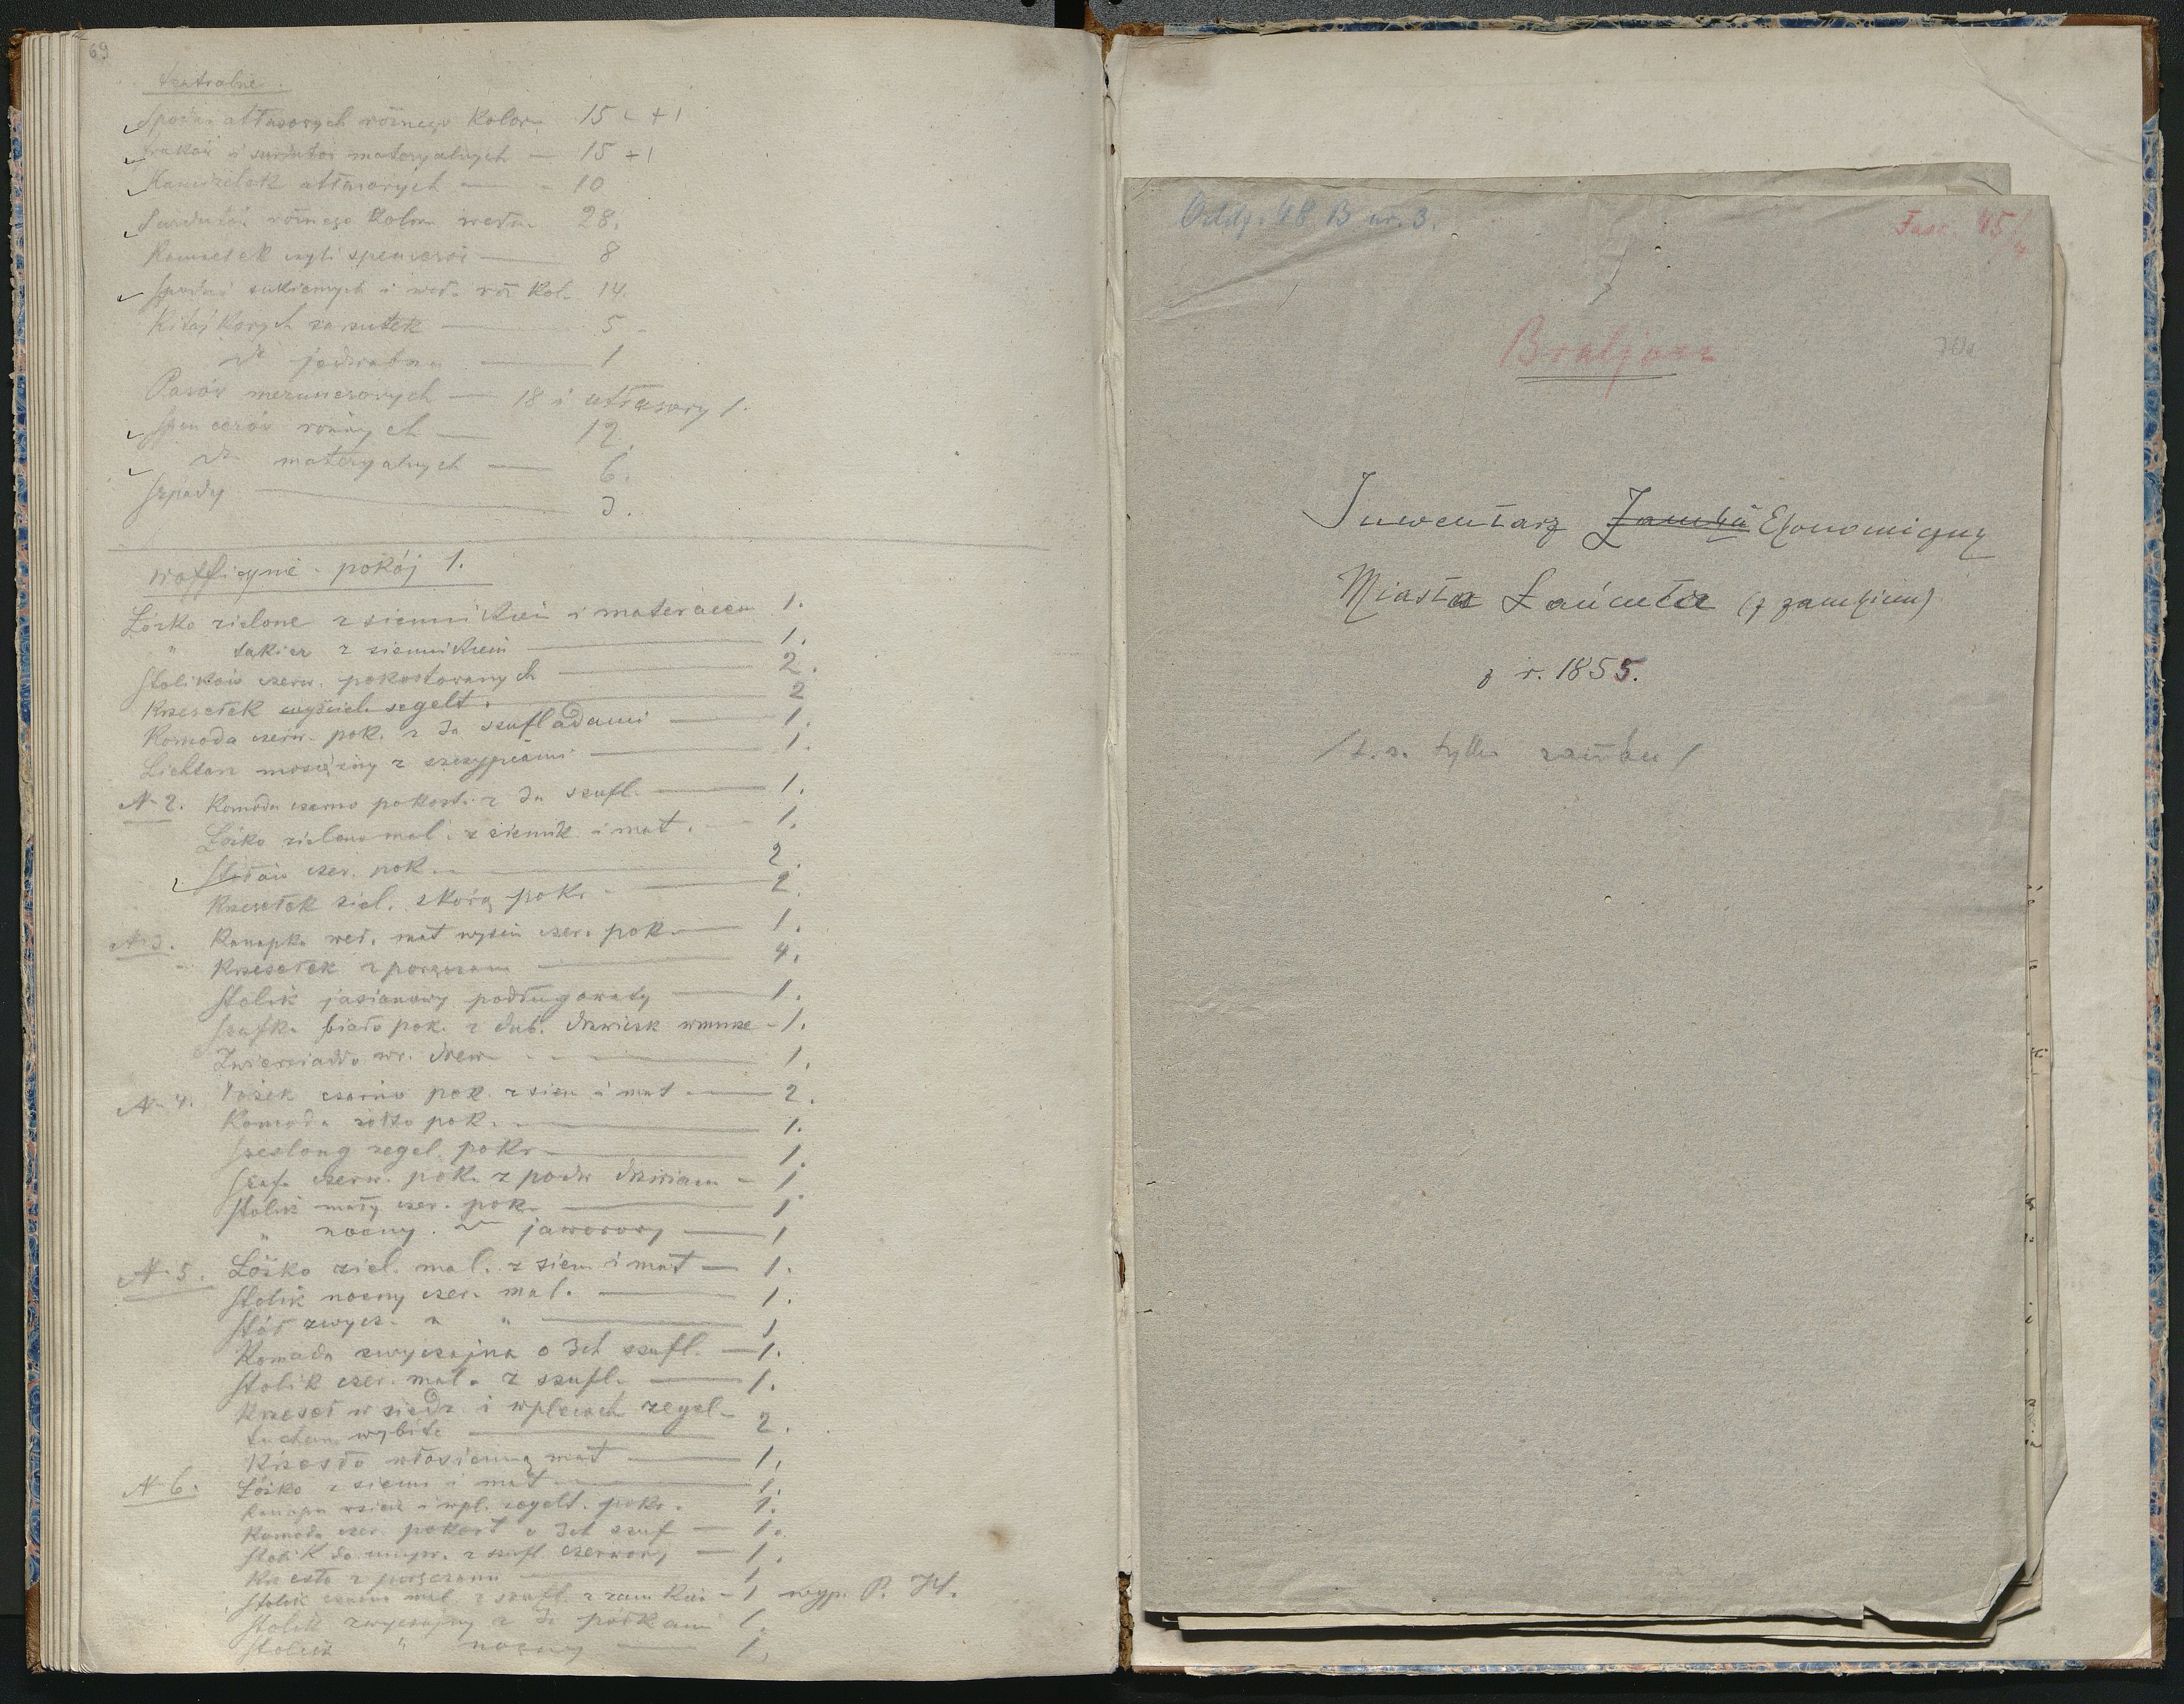 69
teatralne
Spodni atłasowych różnego Koloru 15 +1
fraków i surdutów materyalnych — 15 +1
Kamizelek atłasowych — 10
Surdutów różnego Koloru wełn. 28.
czyli spencerów — 8
Spodni sukiennych i weł. róż Kol. 14.
Kitajkowych 5
do jedwabna — 1
Pasów meryusowych — 18 i atłasowy 1.
Spencerów różnych — 12.
do materyalnych — 6.
Szpady — 3.
w officynie - pokój 1.
Łóżko zielone z siennikiem i materacem 1.
" takież z siennikiem — 1.
Stolików czerw. pokostowanych — 2.
Krzesełek segelt. — 2
Komoda czerw. pok. z 3a szufladami — 1.
Lichtarz mosiężny z szczypcami — 1.
N 2. Komoda czarno pokost. z 3a szufl. — 1.
Łóżko zielono mal. z siennik i mat. — 1.
Stołów czer. pok. — 2.
Krzesełek ziel. skórą pokr. — 2.
N 3. Kanapka weł. mat czer. pok. — 1.
Krzesełek z poręczami — 4.
Stolik jasionowy podługowaty — 1.
Szafka biało pok. z dub. drzwiczk — 1.
Zwierciadło wr. drew — 1.
N 4. Łóżek czarno pok. z sien i mat — 2.
Komoda żółto pok. — 1.
Szeslong segel. pokr. — 1.
Szafa czerw. pok. z podw drzwiam — 1
Stolik mały czer. pok. — 1
" nocny jaworowy — 1
N 5. Łóżko ziel. mal. z sien i mat — 1.
Stolik nocny czer. mal. — 1.
Stół zwycz. " " — 1
Komoda zwyczajna o 3ch szufl. — 1.
Stolik czer. mal. z szufl. — 1.
Krzeseł w siedz. i w plecach segel-
tuchem wybite — 2.
Krzesło włosienną mat — 1.
N 6. Łóżko z sienn i mat — 1.
Kanapa w sied i w pl. segelt. pokr. 1.
Komoda czer. pokost o 3ch szuf — 1.
Stolik do z szufl. czerwony — 1.
Krzesło z poręczami — 1
Stolik czarno mal z szufl. z zamkiem — 1 wyp. P.
Stolik zwyczajny z 3a półkami 1.
Stolik " nocny — 1.
Oddz. 48 B nr. 3.
Fasc. 45/
Inwentarz Zamku Ekonomiczny
Miasta Łańcuta (z zamkiem)
z r. 1855.
/t. z. tylko zamku/